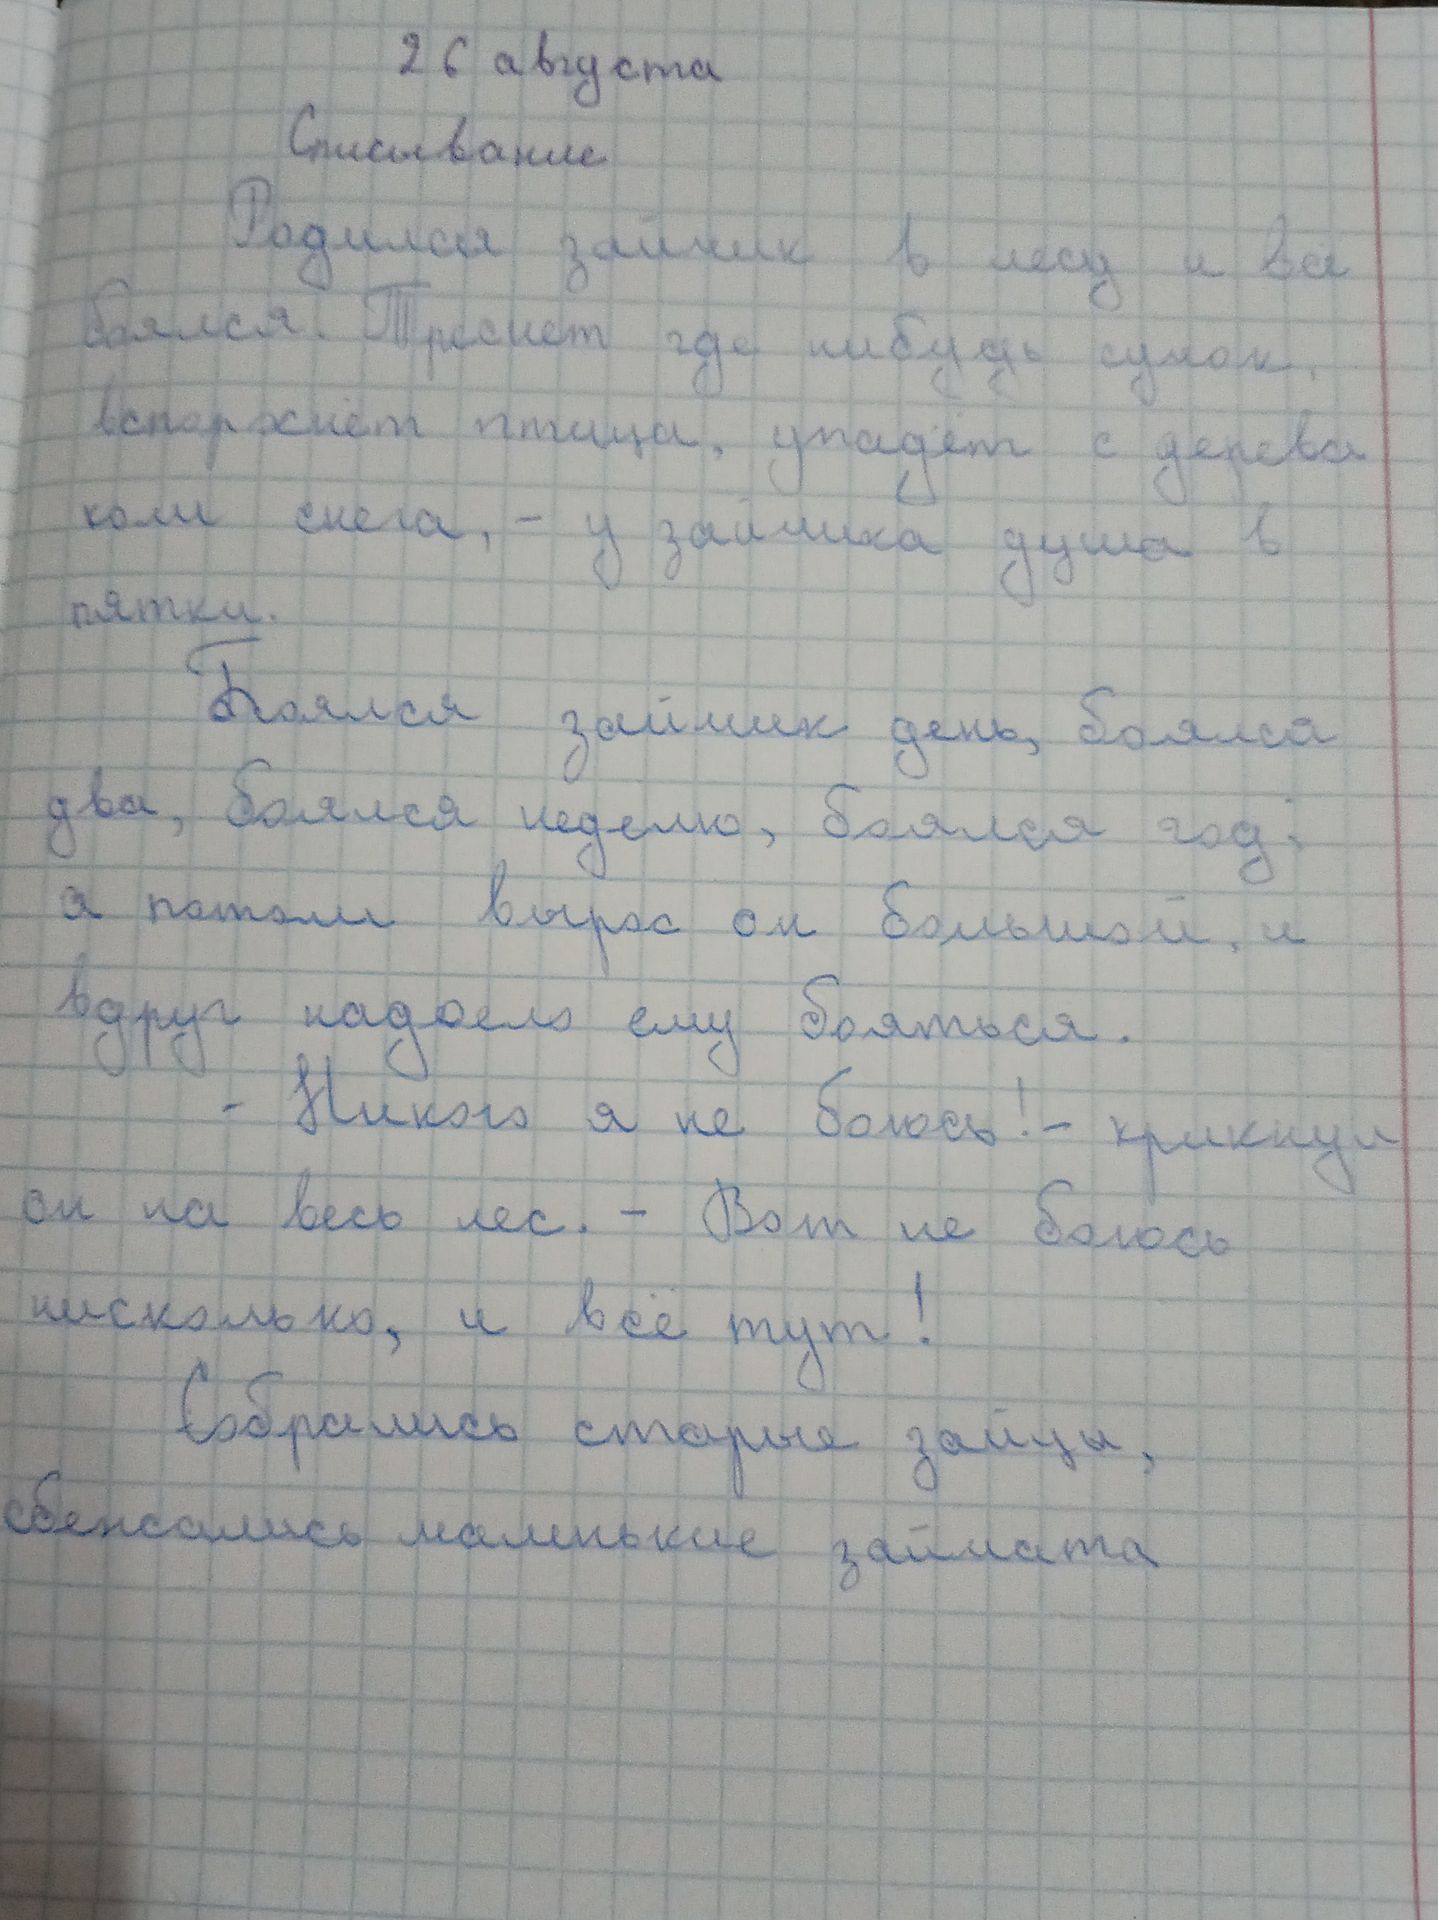 26 августа
Списывание
Родился зайчик в лесу и всё
боялся. Треснет где нибудь сучок,
вспорхнёт птица, упадёт с дерева
ком снега, - у зайчика душа в
пятки.
Боялся зайчик день, боялся
два, боялся неделю, боялся год;
а потом вырос он большой, и
вдруг надоело ему бояться.
- Никого я не боюсь! - крикнул
он на весь лес. - Вот не боюсь
нисколько, и всё тут!
Собрались старые зайцы,
сбежались маленькие зайчата